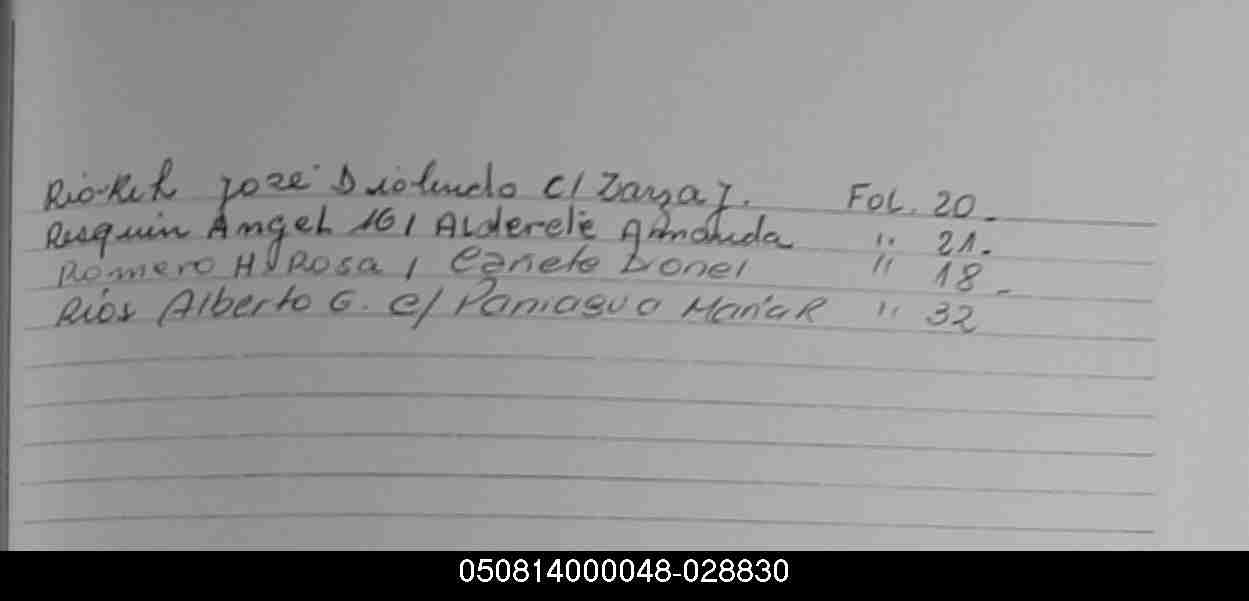 José c/ Zarza J. Fol. 20.
Resquin Angel 161 Alderete Armanda " 21.
Romero H. Rosa, Cañete Leonel " 18.
Ríos Alberto G. c/ Paniagua María R " 32
050814000048-028830